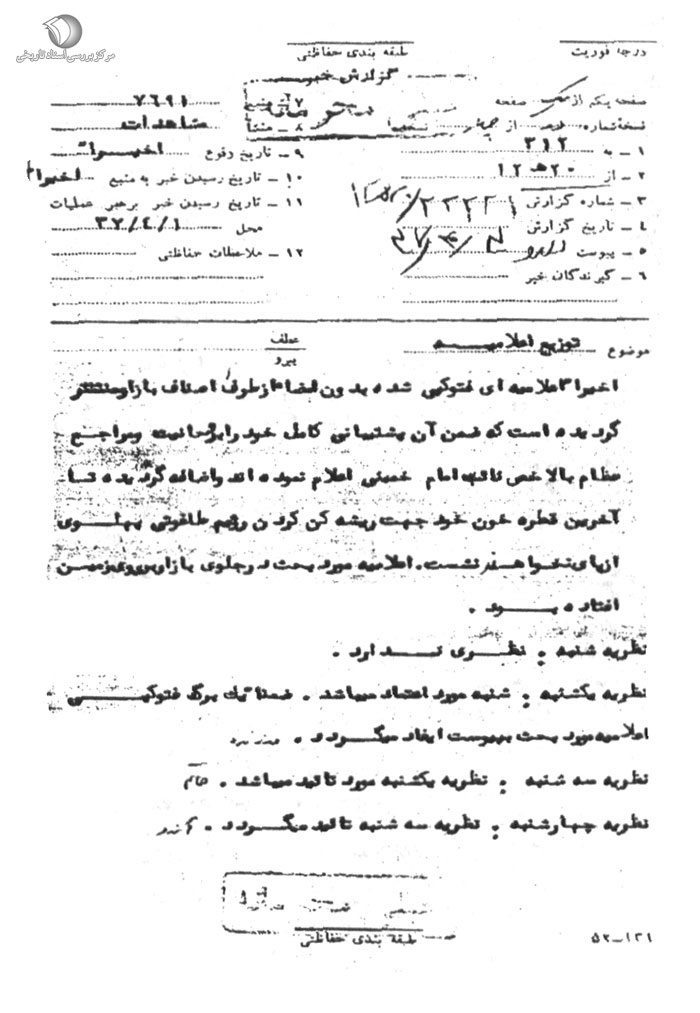 مرکز بررسی اسناد تاریخی
درجه فوریت
طبقه بندی حفاظتی
گزارش خبر
صفحه یکم از یک صفحه
نسخه شماره از چهار نسخه
۱ ـ به ۳۱۲
۲ ـ از ۲۰ هـ ۱۲
۳ ـ شماره گزارش
۴ ـ تاریخ گزارش
۵ ـ پیوست دارد
۶ ـ گیرندگان خبر
۷ ـ منبع ۷۶۹۱
۸ ـ منشأ مشاهدات
۹ ـ تاریخ وقوع اخیرا"
۱۰ ـ تاریخ رسیدن خبر به منبع اخیرا"
۱۱ ـ تاریخ رسیدن خبر برهبر عملیات
محل ۳۷/۴/۱
۱۲ ـ ملاحظات حفاظتی
موضوع توزیع اعلامیه
عطف
پیرو
اخیرا" اعلامیه ای فتوکپی شده بدون امضاء از طرف اصناف بازار منتشر
گردیده است که ضمن آن پشتیبانی کامل خود را از روحانیت و مراجع
عظام بالاخص نائب امام خمینی اعلام نموده اند و اضافه گردیده تا
آخرین قطره خون خود جهت ریشه کن کردن رژیم طاغوتی پهلوی
از پای نخواهند نشست. اعلامیه مورد بحث در جلوی بازار بر روی زمین
افتاده بود .
نظریه شنبه : نظری ندارد .
نظریه یکشنبه : شنبه مورد اعتماد میباشد . ضمنا یک برگ فتوکپی
اعلامیه مورد بحث بپیوست ایفاد میگردد .
نظریه سه شنبه : نظریه یکشنبه مورد تائید میباشد .
نظریه چهارشنبه : نظریه سه شنبه تائید میگردد .
طبقه بندی حفاظتی
۵۲-۱۳۱